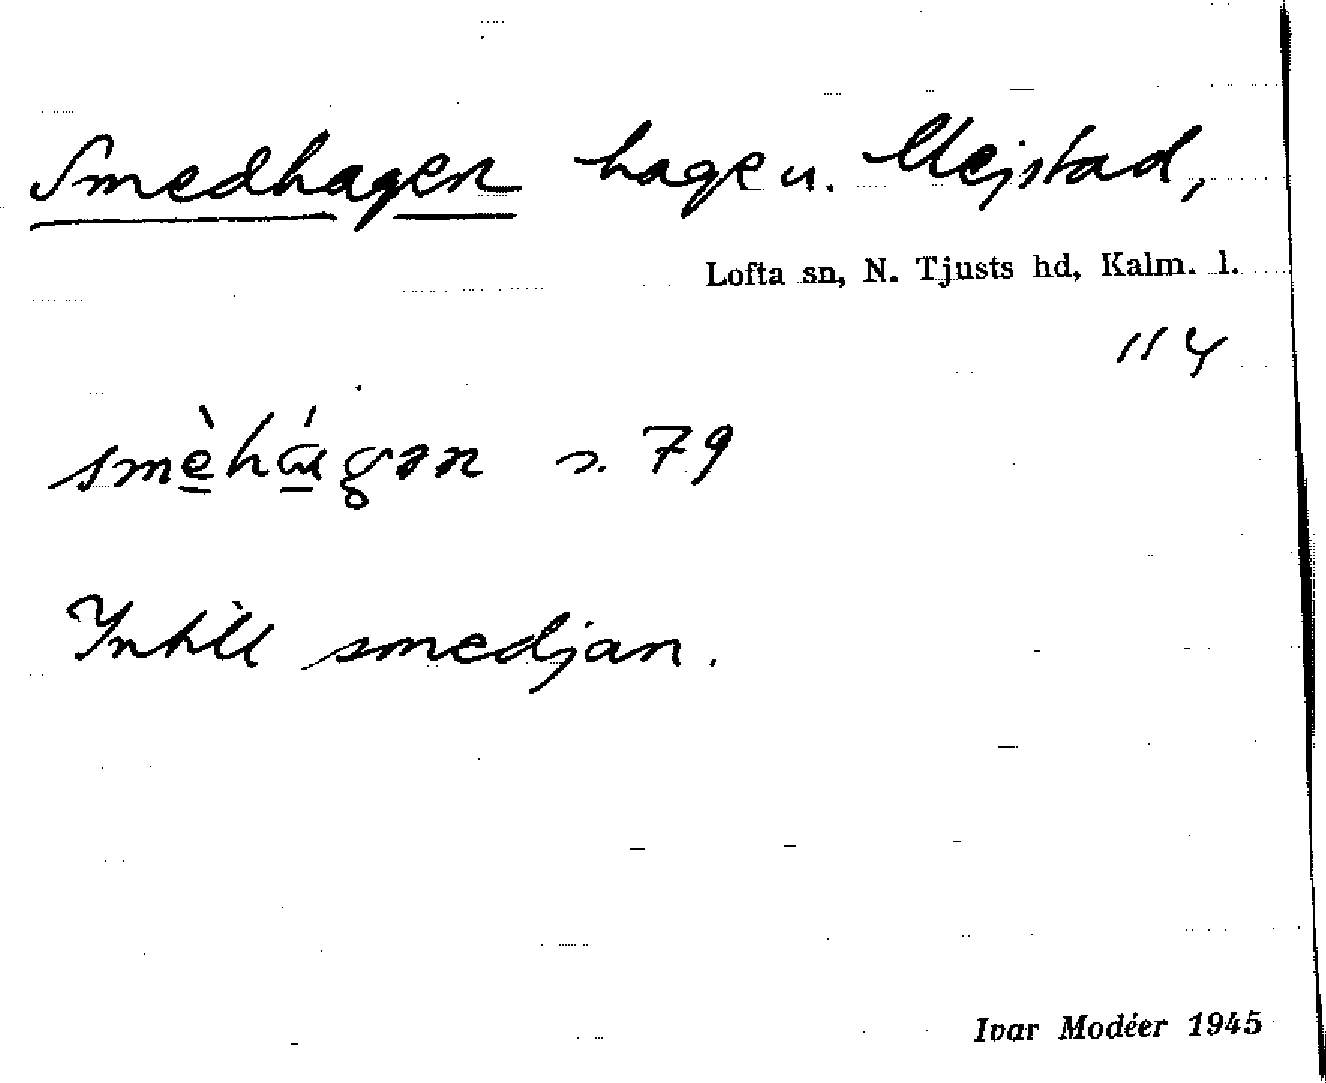 Smedhagen hage u. Mejstad,
Lofta sn, N. Tjusts hd, Kalm. l.
114
smèhágən s. 79
Intill smedjan.
Ivar Modéer 1945